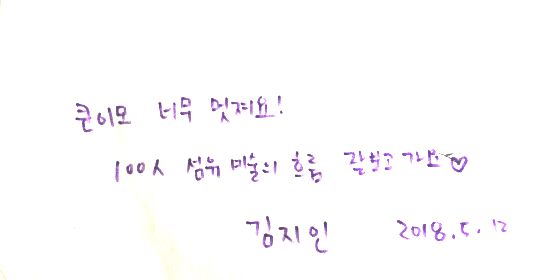 큰이모 너무 멋져요!
100人 섬유 미술의 흐름 잘보고 가요♡
김지인 2018.5.12